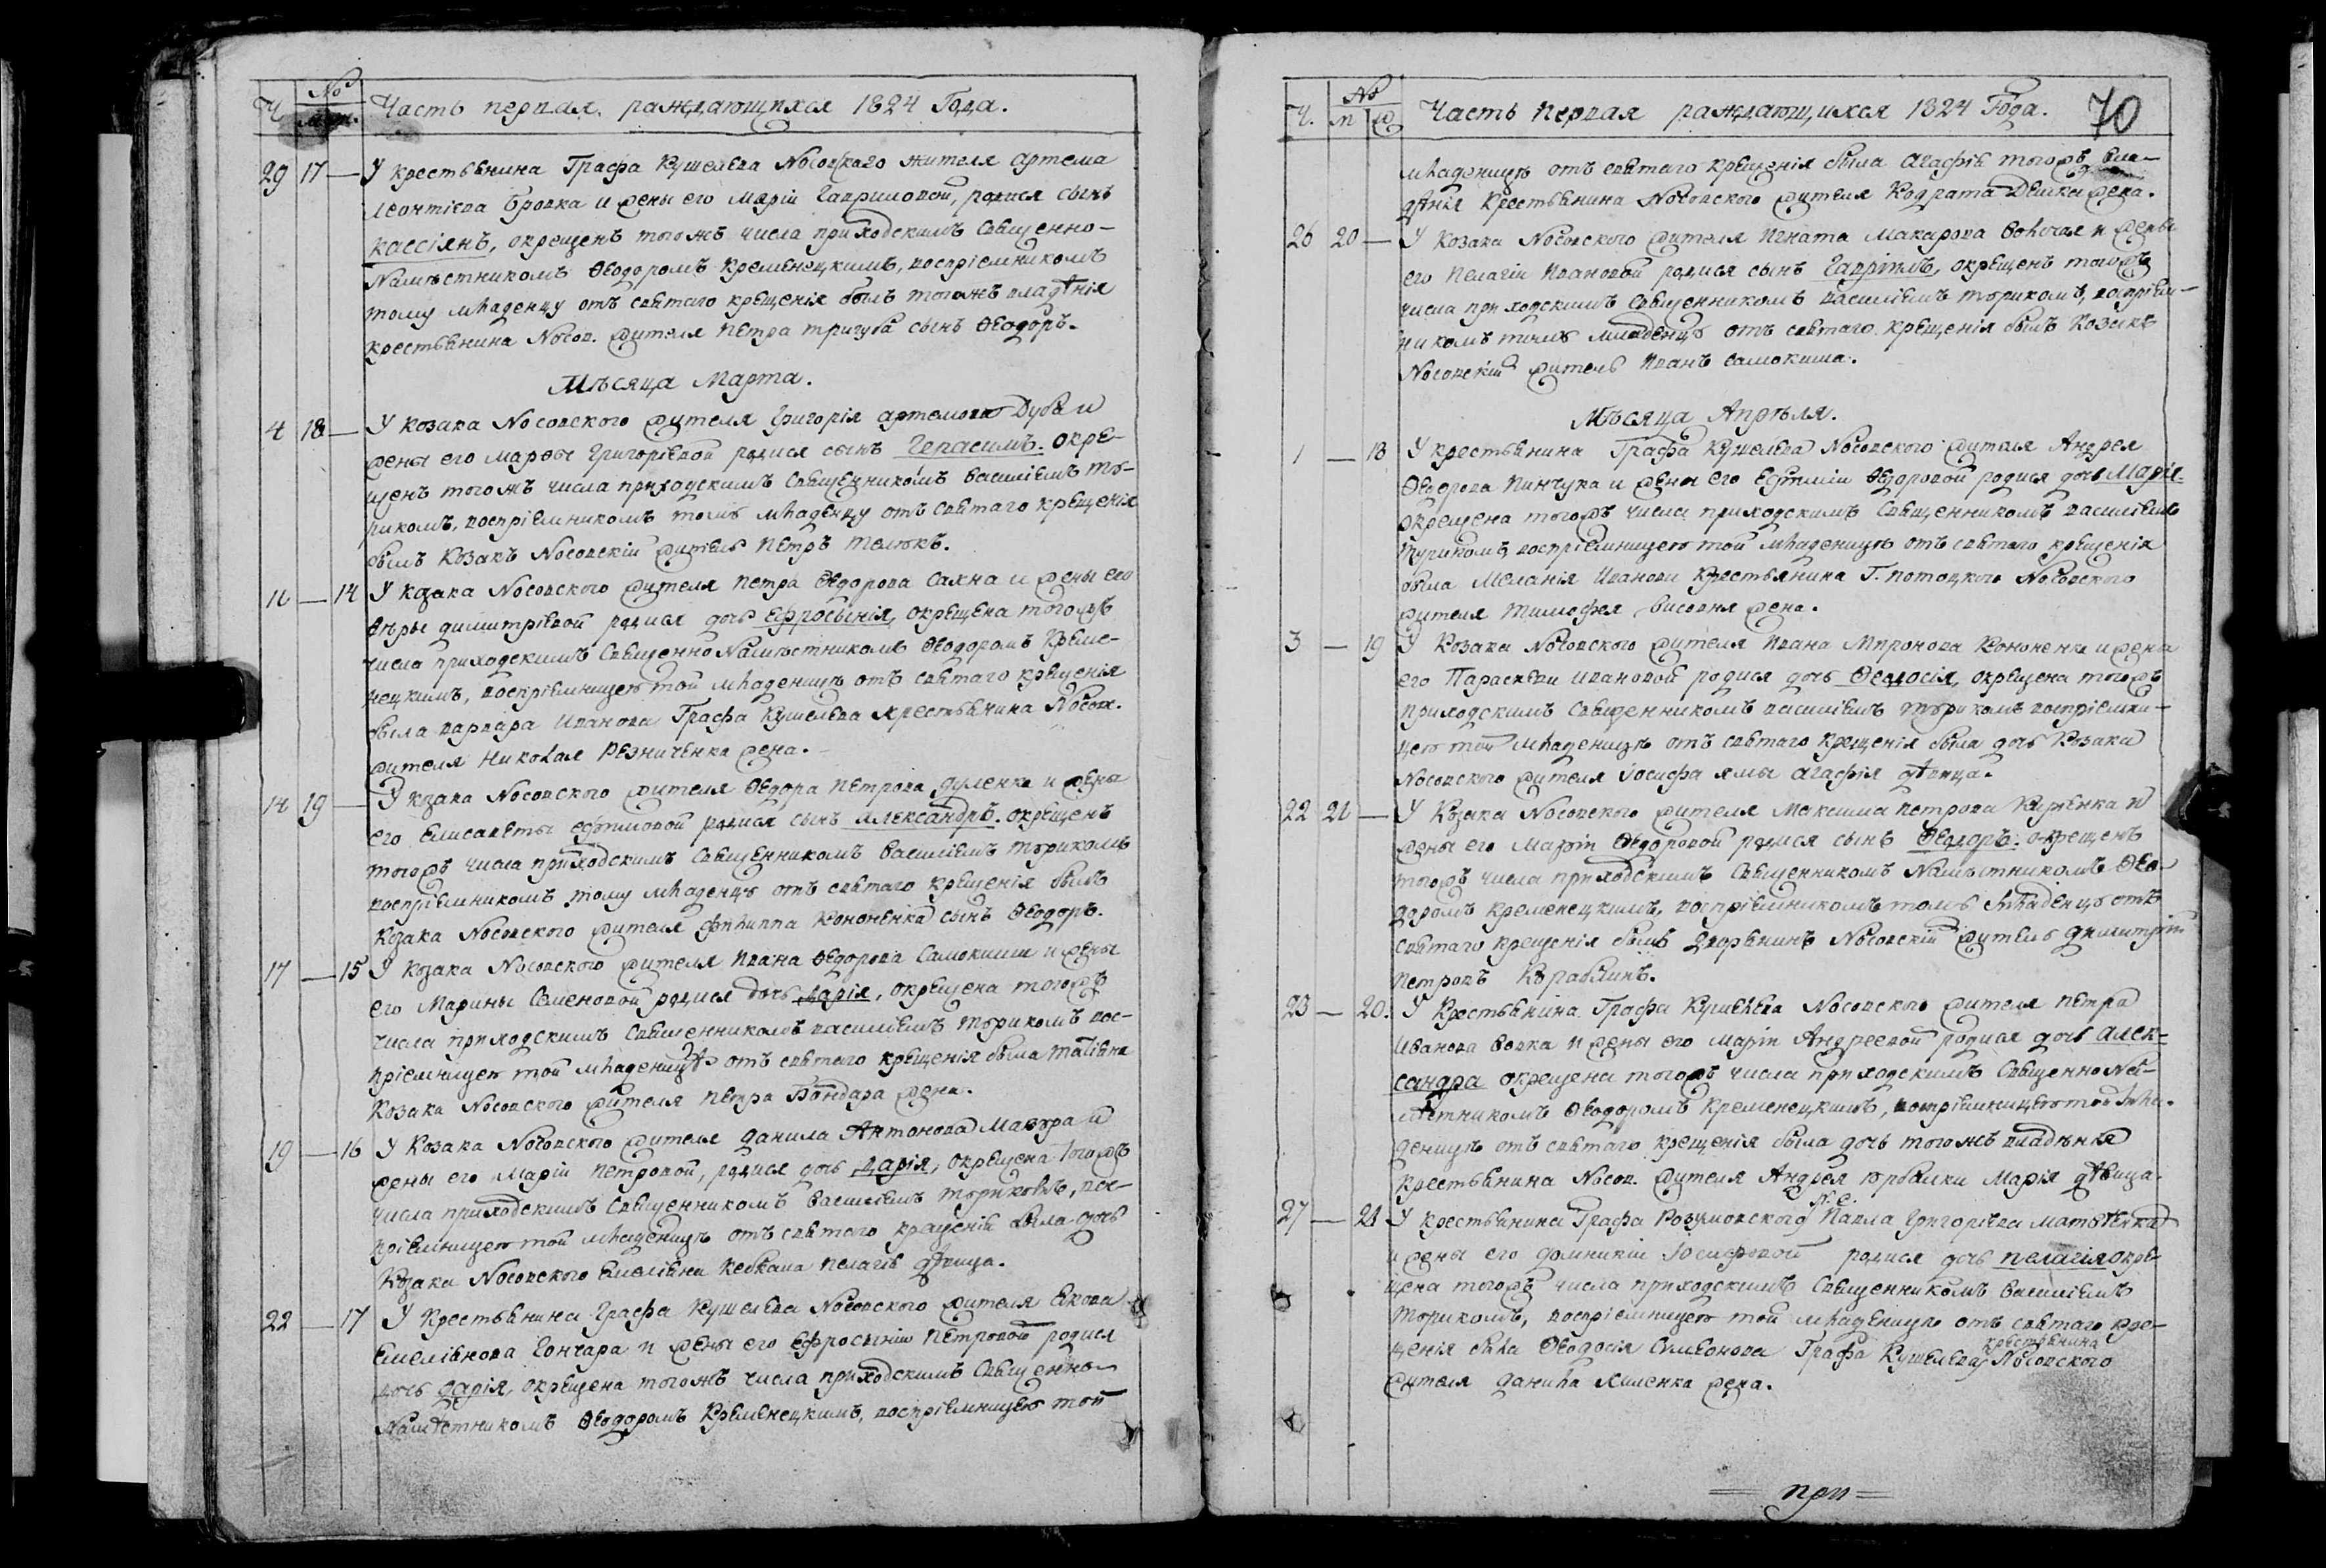 Ч. № м. ж. Часть первая, раждающихся 1824 Года.
29 17 — У крестьянина Графа Кушелева Носовского жителя Артема
Леонтіева Бровка и жены его Маріи Гавриловой, родися сынъ
Кассіянъ, окрещенъ тогожъ числа приходскимъ Священно-
Намѣстникомъ Ѳеодоромъ Кременецкимъ, воспріемникомъ
тому младенцу отъ святаго крещенія былъ тогожъ владѣнія
крестьянина Носов. жителя Петра Тригуба сынъ Ѳеодоръ.
Мѣсяца Марта.
4 18 — У козака Носовского жителя Григорія Артемова Дуба и
жены его Марѳы Григоріевой родися сынъ Герасимъ. Окре-
щенъ тогожъ числа приходскимъ Священникомъ Василіемъ Ту-
рикомъ, воспріемникомъ тому младенцу отъ святаго крещенія
былъ козакъ Носовскій житель Петръ
11 — 14 У козака Носовского жителя Петра Ѳедорова Сахна и жены его
Вѣры Димитріевой родися дочь Ефросинія, окрещена тогожъ
числа приходскимъ Священно Намѣстникомъ Ѳеодоромъ Креме-
нецкимъ, воспріемницею той младеницѣ отъ святаго крещенія
была Варвара Иванова Графа Кушелева крестьянина Носов.
жителя Николая Резниченка жена.
14 19 — У козака Носовского жителя Ѳедора Петрова Дуленка и жены
его Елисаветы Ефимовой родися сынъ Александръ. окрещенъ
тогожъ числа приходскимъ Священникомъ Василіемъ Турикомъ
воспріемникомъ тому младенцу отъ святаго крещенія былъ
Козака Носовского жителя Филиппа Кононенка сынъ Ѳеодоръ.
17 — 15 У козака Носовского жителя Ивана Ѳедорова Самокиши и жены
его Марины Семеновой родися дочь Дарія, окрещена тогожъ
числа приходскимъ Священникомъ Василіемъ Турикомъ вос-
пріемницею той младеницѣ отъ святаго крещенія была Татіяна
Козака Носовского жителя Петра Бондара жена.
19 — 16 У Козака Носовского жителя Данила Антонова и
жены его Маріи Петровой, родися дочь Дарія, окрещена тогожъ
числа приходскимъ Священникомъ Василіемъ Турикомъ, вос-
пріемницею той младеницѣ отъ святаго крещенія была дочь
Козака Носовского Емеліяна Кебкала Пелагія дѣвица.
22 — 17 У Крестьянина Графа Кушелева Носовского жителя Якова
Емеліянова Гончара и жены его Ефросиніи Петровой родися
дочь Дарія, окрещена тогожъ числа приходскимъ Священно-
Намѣстникомъ Ѳеодоромъ Кременецкимъ, воспріемницею той
Ч. № м ж Часть первая раждающихся 1824 Года. 70
младеницѣ отъ святаго крещенія была Агафія тогожъ вла-
дѣнія Крестьянина Носовского жителя Кодрата жена.
26 20 — У Козака Носовского жителя Игната Макарова и жены
его Пелагіи Ивановой родися сынъ Гавріилъ, окрещенъ тогожъ
числа приходскимъ Священникомъ Василіемъ Турикомъ, воспріем-
никомъ тому младенцу отъ святаго крещенія былъ Козакъ
Носовскій житель Иванъ Самокиша.
Мѣсяца Апрѣля.
1 — 18 У крестьянина Графа Кушелева Носовского жителя Андрея
Ѳедорова Пинчука и жены его Ефиміи Ѳедоровой родися дочь Марія.
Окрещена тогожъ числа приходскимъ Священникомъ Василіемъ
Турикомъ, воспріемницею той младеницѣ отъ святаго крещенія
была Меланія Иванова крестьянина Г. Потоцкого Носовского
жителя Тимофея жена.
3 — 19 У Козака Носовского жителя Ивана Миронова Кононенка и жены
его Параскевы Ивановой родися дочь Ѳеодосія, окрещена тогожъ
приходскимъ Священникомъ Василіемъ Турикомъ воспріемни-
цею той младеницѣ отъ святаго крещенія была дочь Козака
Носовского жителя Іосифа Ямы Агафія дѣвица.
22 21 — У Козака Носовского жителя Максима Петрова и
жены его Маріи Ѳедоровой родися сынъ Ѳеодоръ. окрещенъ
тогожъ числа приходскимъ Священникомъ Намѣстникомъ Ѳео-
доромъ Кременецкимъ, воспріемникомъ тому младенцу отъ
святаго крещенія былъ дворянинъ Носовскій житель Димитрій
Петровъ Кораблинъ.
23 — 20. У Крестьянина Графа Кушелева Носовского жителя Петра
Иванова Вовка и жены его Маріи Андреевой родися дочь Алек-
сандра окрещена тогожъ числа приходскимъ Священно На-
мѣстникомъ Ѳеодоромъ Кременецкимъ, воспріемницею той мла-
деницѣ отъ святаго крещенія была дочь тогожъ владѣнія
крестьянина Носов. жителя Андрея Горбалки Марія дѣвица.
27 — 21 У крестьянина Графа Розумовского Н. с. Павла Григоріева
и жены его Домникіи Іосифовой родися дочь Пелагія окре-
щена тогожъ числа приходскимъ Священникомъ Василіемъ
Турикомъ, воспріемницею той младеницѣ отъ святаго кре-
щенія была Ѳеодосія Симеонова Графа Кушелева крестьянина Носовского
жителя Данила жена.
= при =